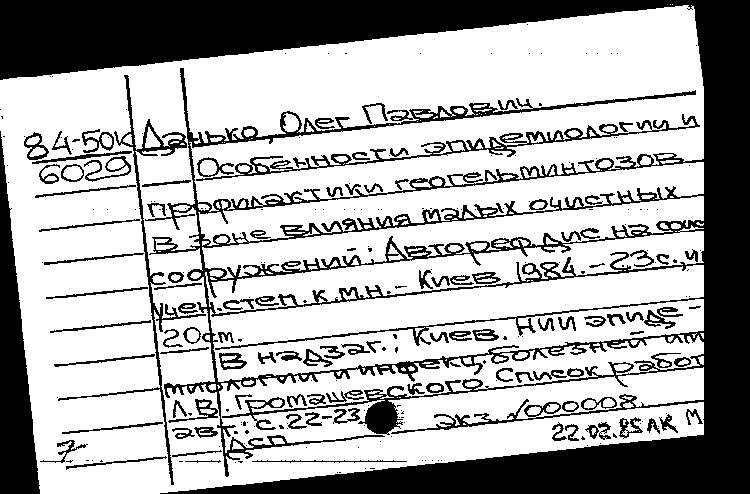 84-50К Данько, Олег Павлович.
6029 Особенности эпидемиологии и
профилактики геогельминтозов
в зоне влияния малых очистных
сооружений: Автореф. дис. на соис
учен. степ. к.м.н. - Киев, 1984. - 23 с.,
20 см.
В надзаг.: Киев. НИИ эпиде-
миологии и инфекц. болезней им
Л.В. Громашевского. Список работ
авт.: с. 22-23 экз. №000008.
7 ДСП 22.02.85 АК М